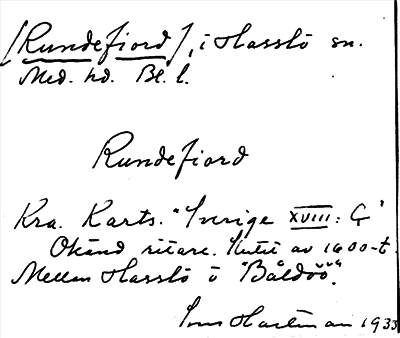 [Rundefiord], i Hasslö sn.
Med. hd. Bl. l.
Rundefiord
Kra. Karts. "Sverige XVIII: G"
Okänd ritare. Slutet av 1600-t.
Mellan Hasslö o "Båldöö".
Hartman 1933